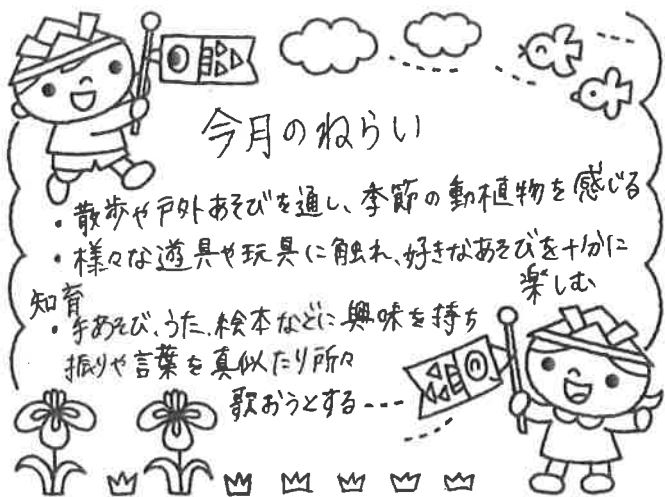 今月のねらい
・散歩や戸外あそびを通し、季節の動植物を感じる
・様々な遊具や玩具に触れ、好きなあそびを十分に
楽しむ
知育
・手あそび、うた、絵本などに興味を持ち
振りや言葉を真似たり所々
歌おうとする---